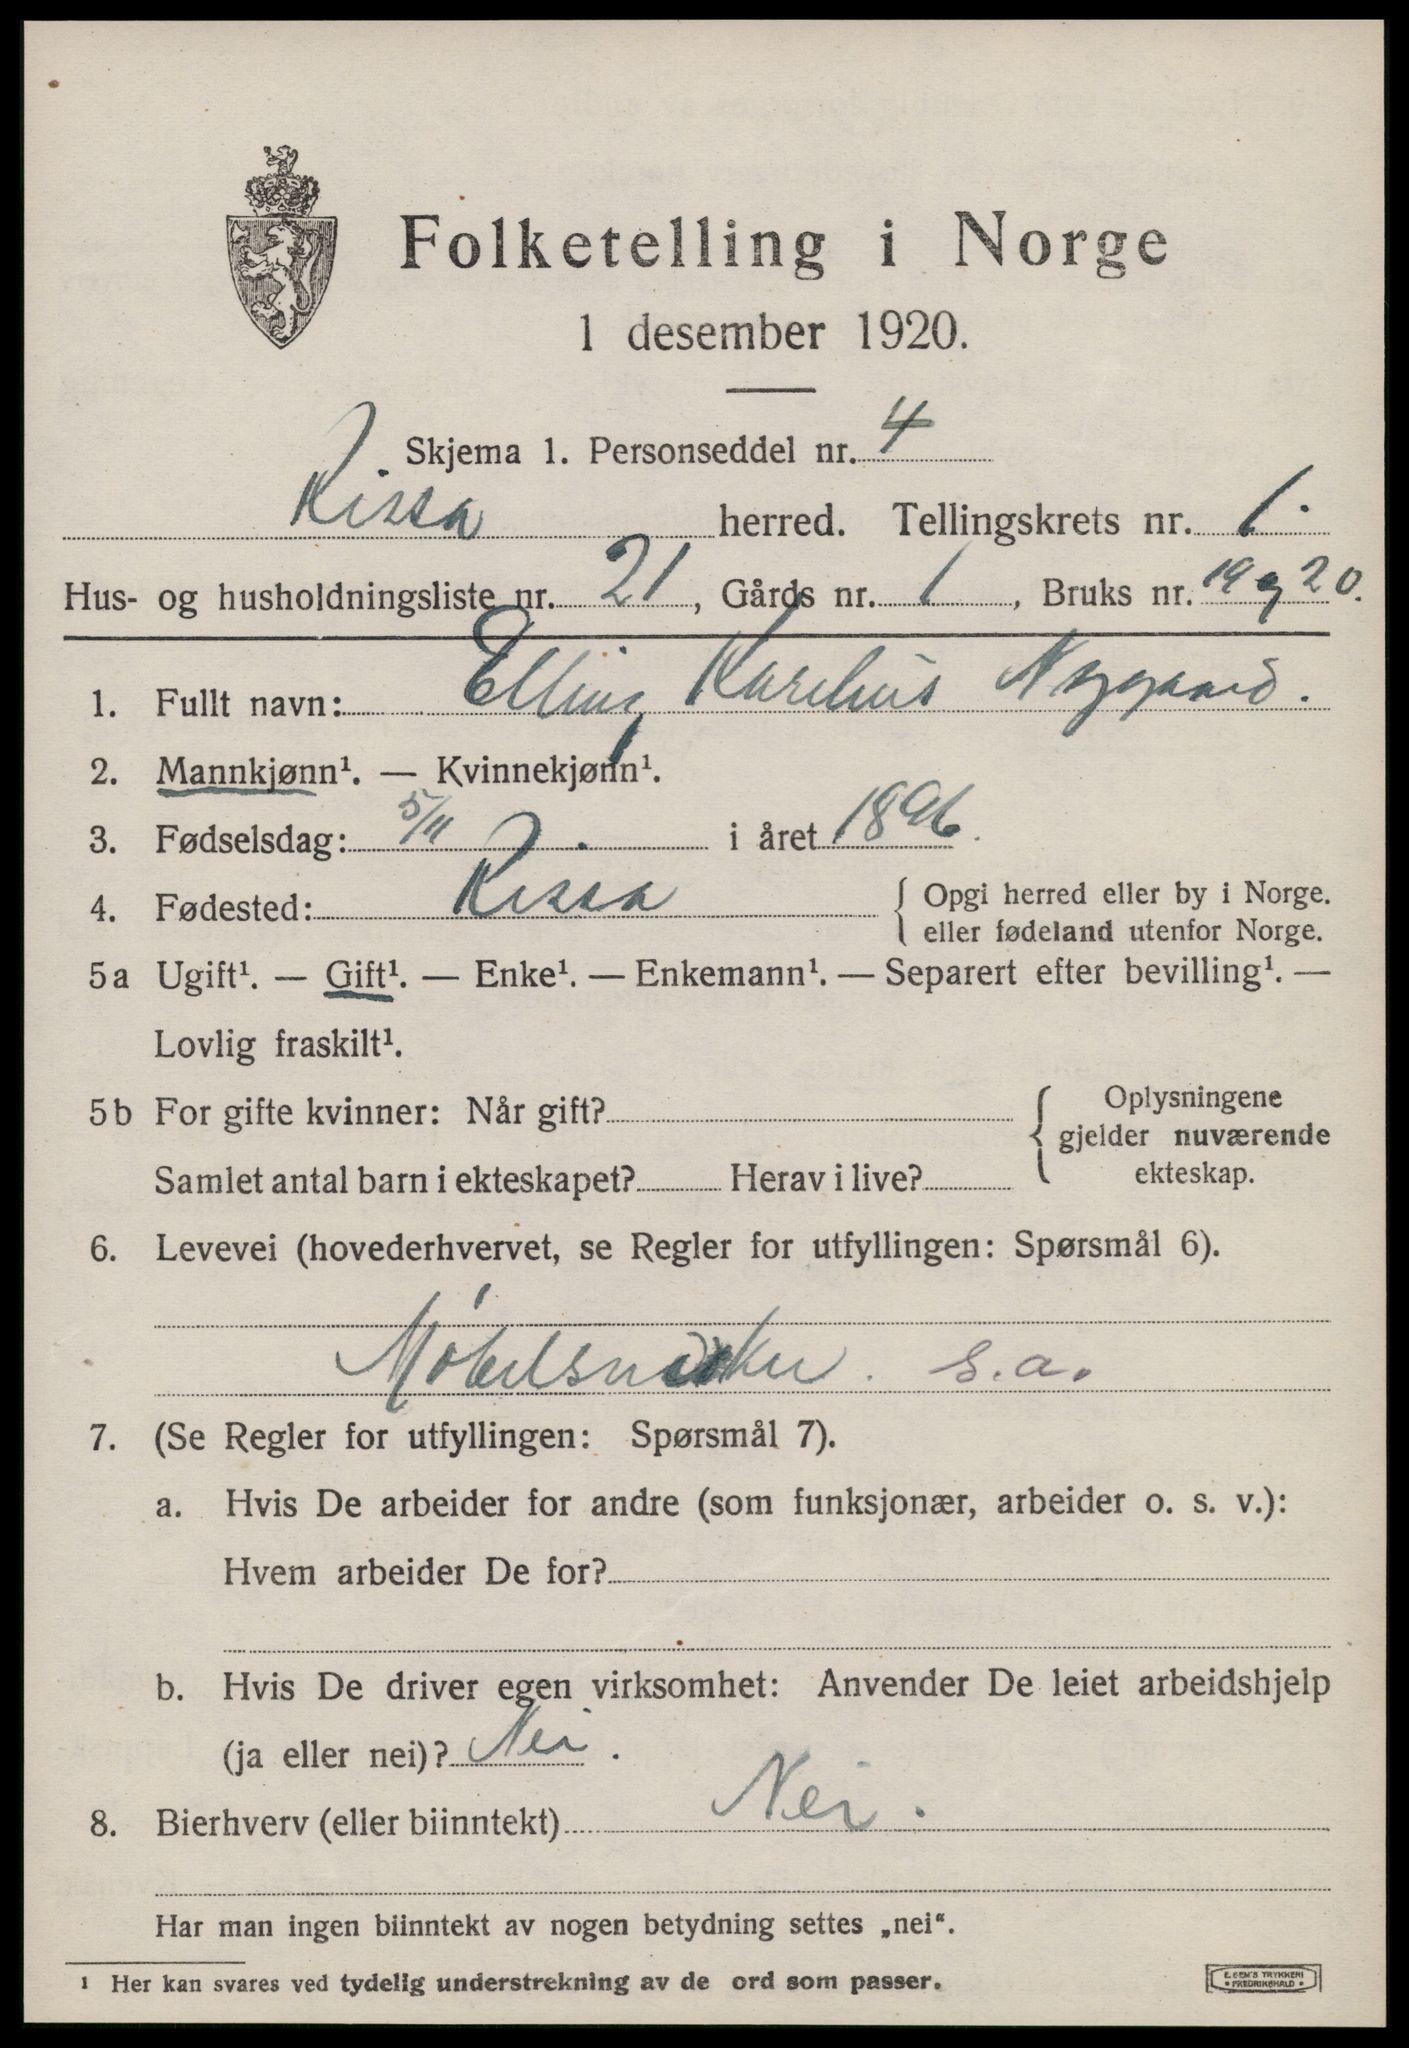 Folketelling i Norge
1 desember 1920.
Skjema 1. Personseddel nr. 4
Rissa herred. Tellingskrets nr. 1.
Hus- og husholdningsliste nr. 21, Gårds nr. 1, Bruks nr. 19 og 20.
1. Fullt navn: Elling Karelius Nygaard.
2. Mannkjønn¹. — Kvinnekjønn¹.
3. Fødselsdag: 5/11 i året 1896.
4. Fødested: Rissa { Opgi herred eller by i Norge.
eller fødeland utenfor Norge.
5a Ugift¹. — Gift¹. — Enke¹. — Enkemann¹. — Separert efter bevilling¹. —
Lovlig fraskilt¹.
5b For gifte kvinner: Når gift? { Oplysningene
gjelder nuværende
Samlet antal barn i ekteskapet? Herav i live? ekteskap.
6. Levevei (hovederhvervet, se Regler for utfyllingen: Spørsmål 6).
Møbelsnekker. s.a.
7. (Se Regler for utfyllingen: Spørsmål 7).
a. Hvis De arbeider for andre (som funksjonær, arbeider o. s. v.):
Hvem arbeider De for?
b. Hvis De driver egen virksomhet: Anvender De leiet arbeidshjelp
(ja eller nei)? Nei.
8. Bierhverv (eller biinntekt) Nei.
Har man ingen biinntekt av nogen betydning settes „nei“.
¹ Her kan svares ved tydelig understrekning av de ord som passer.
E. SEM'S TRYKKERI
• FREDRIKSHALD •